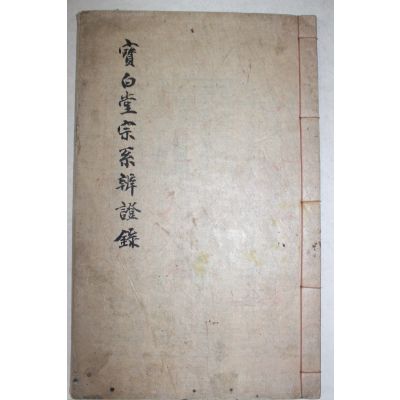 寶白堂宗系辨證錄